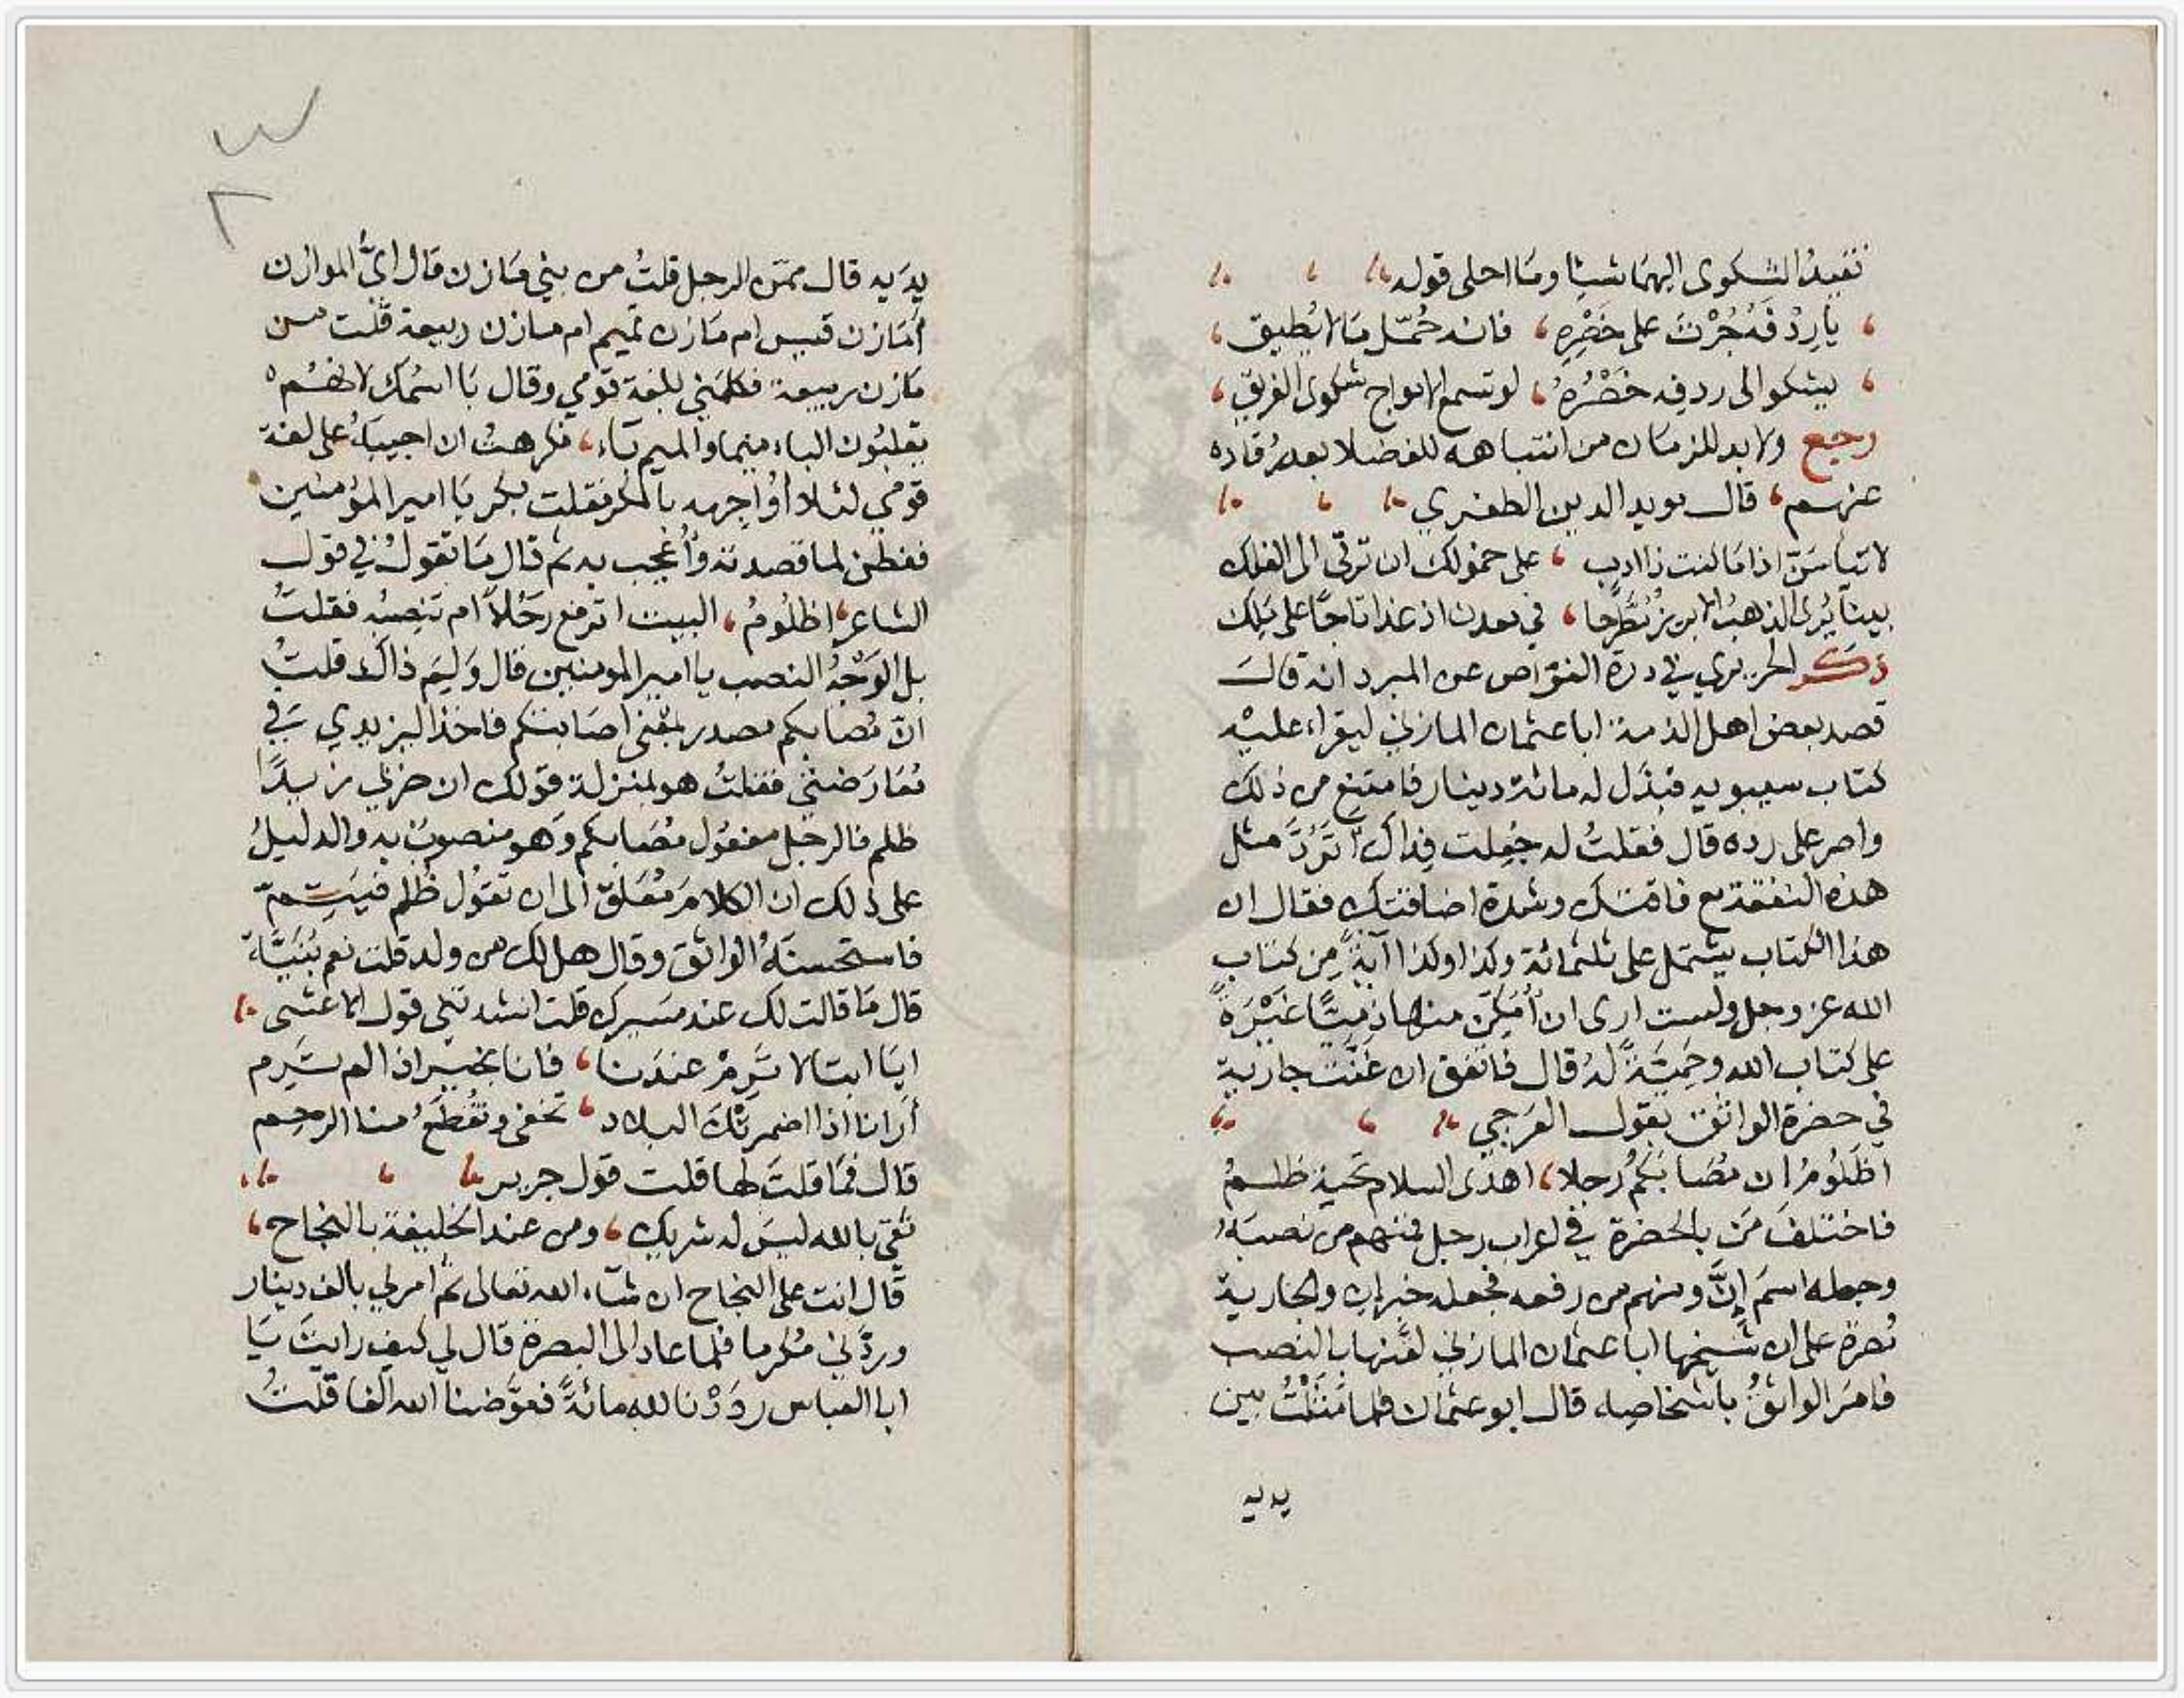 تفيد الشكوى اليهما شيئا وما احلى قوله
يا رِدْفَهُ جُرْتَ على خَصْرِهِ، فانه حُمّل مَا لا يُطيق،
يشكو الى ردفِه خَصْرُهُ، لو تسمع الامواج شكوى الغريق،
رجع ولا بد للزمان من انتباهه للفضلا بعد رُقاده
عنهم، قال مويد الدين الطغري
لا تيأسَنّ اذا مَا كنت ذا ادب، على خمولك ان ترقى الى الفلك
بينا يُرى الذهبُ الابريز مُطَّرحا، في معدن اذ غدا تاجًا على مَلِك
ذكر الحريري في درة الغواص عن المبرد انه قال
قصد بعض اهل الذمة ابا عثمان المازني ليقراء عليْه
كتاب سيبويه فبذَل له مائة دينار فامتنع من ذلك
واصر على رده قال فقلتُ له جُعِلت فِداك أتَرُدَّ مثل
هذه النفقة مع فاقتك وشدة اضاقتك فقال ان
هذا الكتاب يشتمل على ثلثمائة وكذا وكذا آيةً مِن كتاب
الله عز وجل ولست ارى ان أُمَكِّنَ منها ذِميّا غَيْرَةً
على كتاب الله وحَمِيَّةً لهُ قال فاتفق ان غَنَّت جارية
في حضرة الواثق بقول العَرجي
اظَلُومُ ان مُصَابَكُمُ رجلا، اهدَى السلام تحية ظلمُ
فاختلفَ مَن بالحضرة في اعراب رجل فمنهم من نصبَهُ
وجعله اسمَ إنَّ ومنهم من رفعه فجعله خبرا لها والجارية
مُصرة على ان شيخها ابا عثمان المازني لقَّنها بالنصب
فامرَ الواثقُ باشخاصِه قال ابو عثمان فلما مَثَلْتُ بين
يديه
٣
٢
يدَيه قال ممّن الرجل قلتُ من بني مَازن قال ايُّ الموازن
أمَازن قيس ام مَازن تميم ام مازن ربيعة قلت من
مَازن ربيعة فكلمَني بلغة قومي وقال بَا اسْمك لانهُم
يقلبُون الباء ميما والميم بَاء، فكرهتُ ان اجيبَهُ على لغة
قومي لئلا أُوَاجِهه بالمكر فقلت بكر يَا امير المؤمنين
ففطن لما قصدته وأُعجب به ثم قال مَا تقولُ في قول
الشاعر، اظلُومُ، البيت اترفع رَجُلاً ام تنصبُه فقلتُ
بل الوَجْهُ النصب يا امير المومنين قال وَلِمَ ذاك قلتُ
انّ مُصابكم مصدر بمعْنى اصَابتكم فاخذ اليزيدي في
مُعَارَضتي فقلتُ هو بمنزلة قولك ان ضربَك زيدًا
ظلم فالرجُل مفعُول مُصَابكم وَهو منصوبٌ به والدليلُ
على ذلك ان الكلامَ مُعَلق الى ان تقوُل ظلم فيَتِمّ
فاستحسنَهُ الواثق وقال هل لك من ولد قلت نعم بُنَيَّة
قال مَا قالت لك عند مَسيرك قلت انشدتني قول الاعشى
ايَا ابتا لا تَرِمْ عندَنا، فانا بخير اذا لم تَرِم
أَرانا اذا اضمرتْكَ البلاد، تُجفى وتُقطَعُ منا الرحم
قال فمَا قلتَ لها قلت قول جرير
ثقي بالله ليسَ له شريك، ومن عند الخليفة بالنجاح،
قال انت على النجاح ان شاء الله تعالى ثم امر لي بالف دينار
وردَّني مُكرما فلما عاد الى البصرة قال لي كيف رايتَ يَا
ابا العباس رَدَدْنا لله مائةً فعوَّضنا الله الفا قلتُ